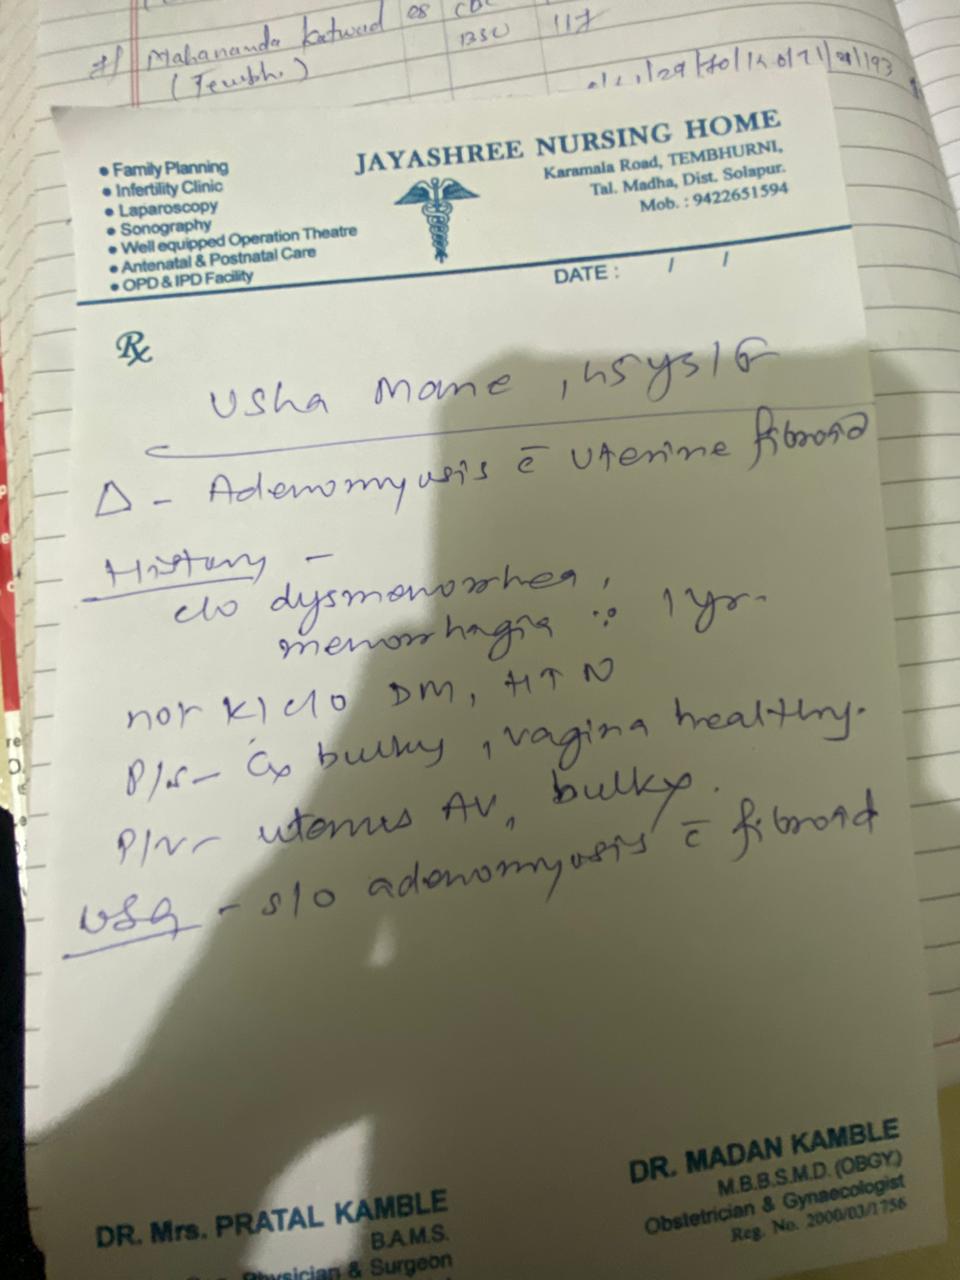 Mahananda Katwad
(Tembh.)
117
• Family Planning
• Infertility Clinic
• Laparoscopy
• Sonography
• Well equipped Operation Theatre
• Antenatal & Postnatal Care
• OPD & IPD Facility
JAYASHREE NURSING HOME
Karamala Road, TEMBHURNI,
Tal. Madha, Dist. Solapur.
Mob. : 9422651594
DATE : / /
Rx
Usha Mane, 45 ys / F
Δ - Adenomyosis c̄ Uterine fibroid
History -
c/o dysmenorrhea,
menorrhagia ∵ 1 yr.
not k/c/o DM, HTN
P/s - Cx bulky, vagina healthy.
P/v - uterus AV, bulky.
USG - s/o adenomyosis c̄ fibroid
DR. Mrs. PRATAL KAMBLE
B.A.M.S.
Physician & Surgeon
DR. MADAN KAMBLE
M.B.B.S.M.D. (OBGY)
Obstetrician & Gynaecologist
Reg. No. 2000/03/1756